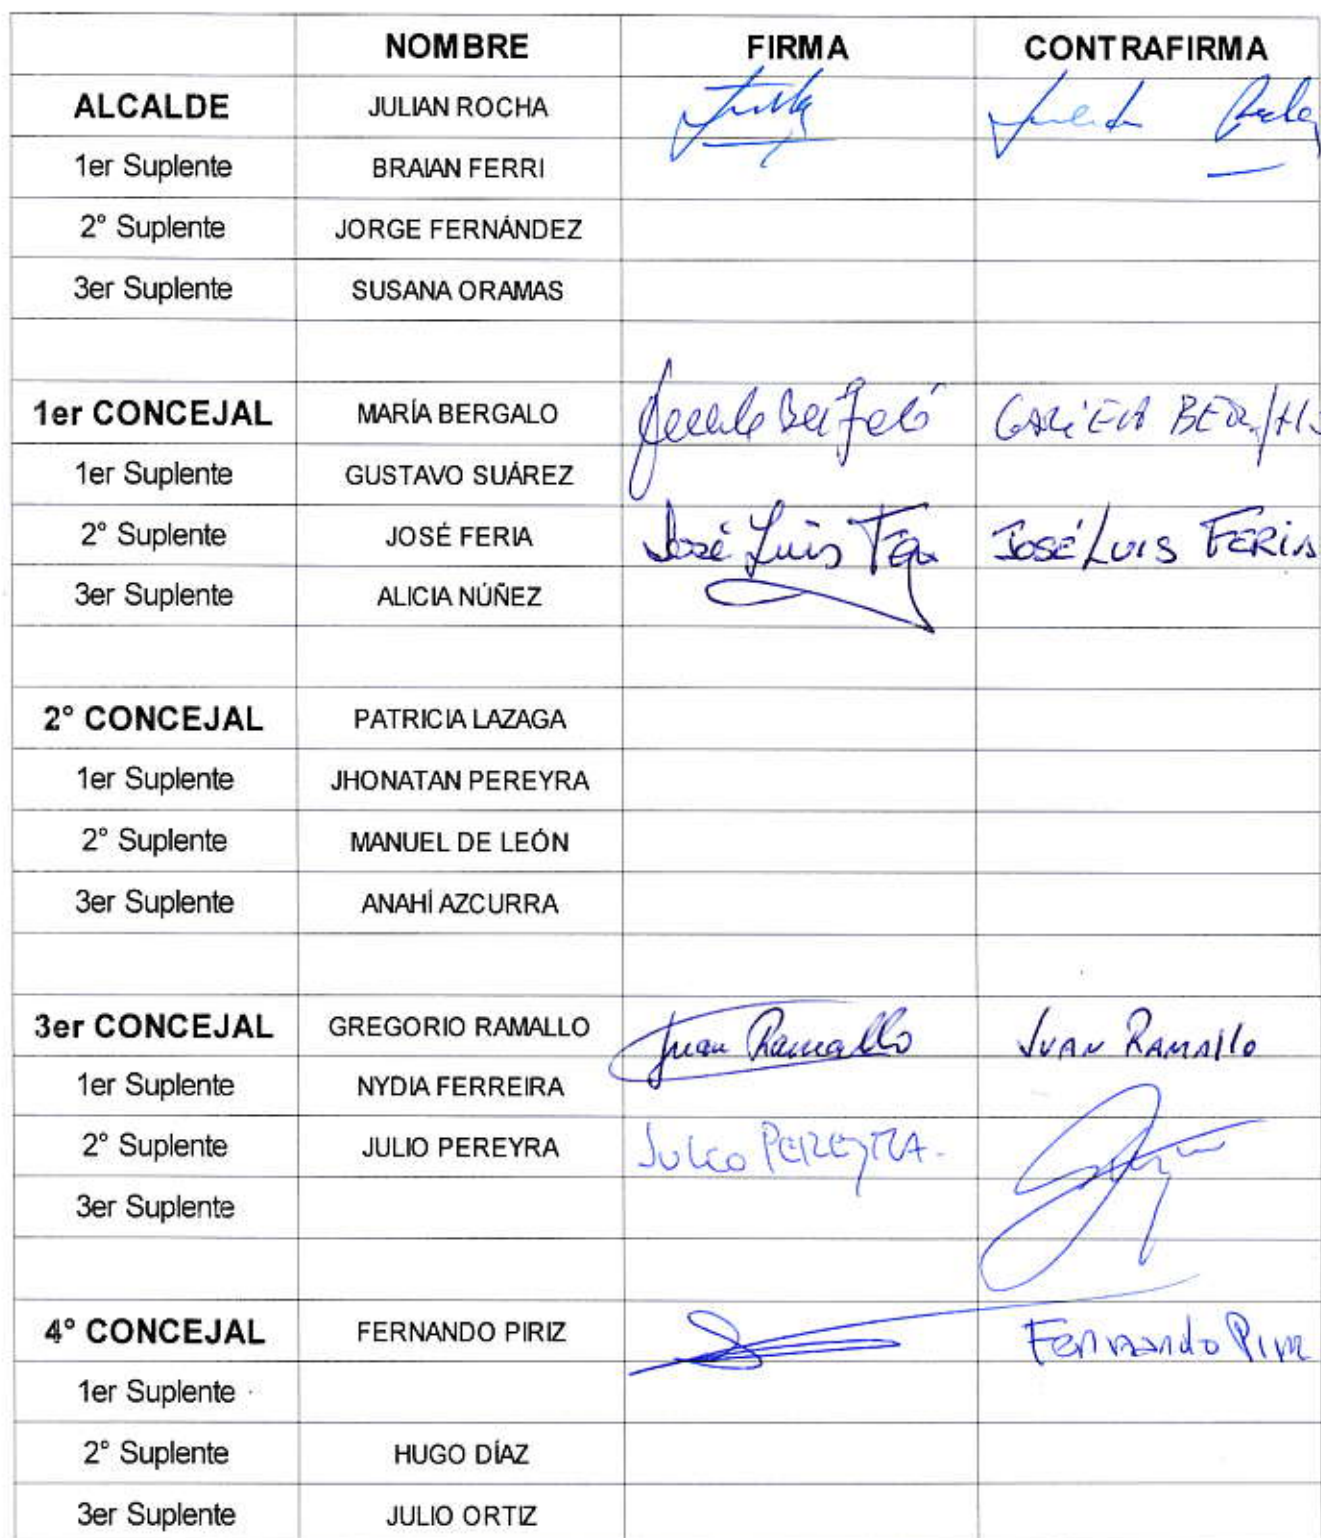 NOMBRE FIRMA CONTRAFIRMA
ALCALDE JULIAN ROCHA
1er Suplente BRAIAN FERRI
2° Suplente JORGE FERNÁNDEZ
3er Suplente SUSANA ORAMAS
1er CONCEJAL MARÍA BERGALO
1er Suplente GUSTAVO SUÁREZ
2° Suplente JOSÉ FERIA José Luis JOSÉ LUIS FERIA
3er Suplente ALICIA NÚÑEZ
2° CONCEJAL PATRICIA LAZAGA
1er Suplente JHONATAN PEREYRA
2° Suplente MANUEL DE LEÓN
3er Suplente ANAHÍ AZCURRA
3er CONCEJAL GREGORIO RAMALLO Juan Ramallo JUAN RAMALLO
1er Suplente NYDIA FERREIRA
2° Suplente JULIO PEREYRA JULIO PEREYRA.
3er Suplente
4° CONCEJAL FERNANDO PIRIZ Fernando Piriz
1er Suplente
2° Suplente HUGO DÍAZ
3er Suplente JULIO ORTIZ